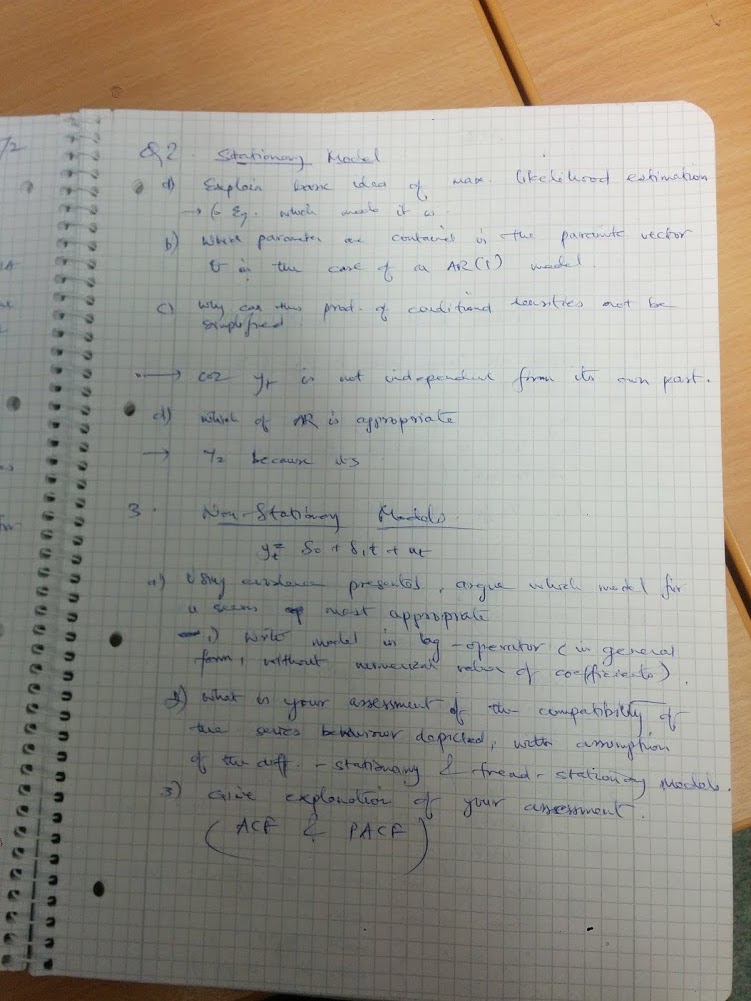 /2
Q2. Stationary Model
a) Explain basic idea of max. likelihood estimation
→ Eg. which it is.
b) which parameter are contained in the paramite vector
in the case of a AR(1) model.
c) why can this prod. of conditional densities not be
simplified.
→ coz yt is not independent from its own past.
d) which of AR is appropriate
→ because its
3. Non-Stationary Models
yt = δ0 + δ1t + ut
a) Using evidence presented, argue which model for
u seems most appropriate
1) Write model in lag-operator (in general
form, without numerical values of coefficients).
2) What is your assessment of the compatibility of
the series behaviour depicted, with assumption
of the diff. - stationary & trend-stationary models.
3) Give explanation of your assessment.
(ACF & PACF)